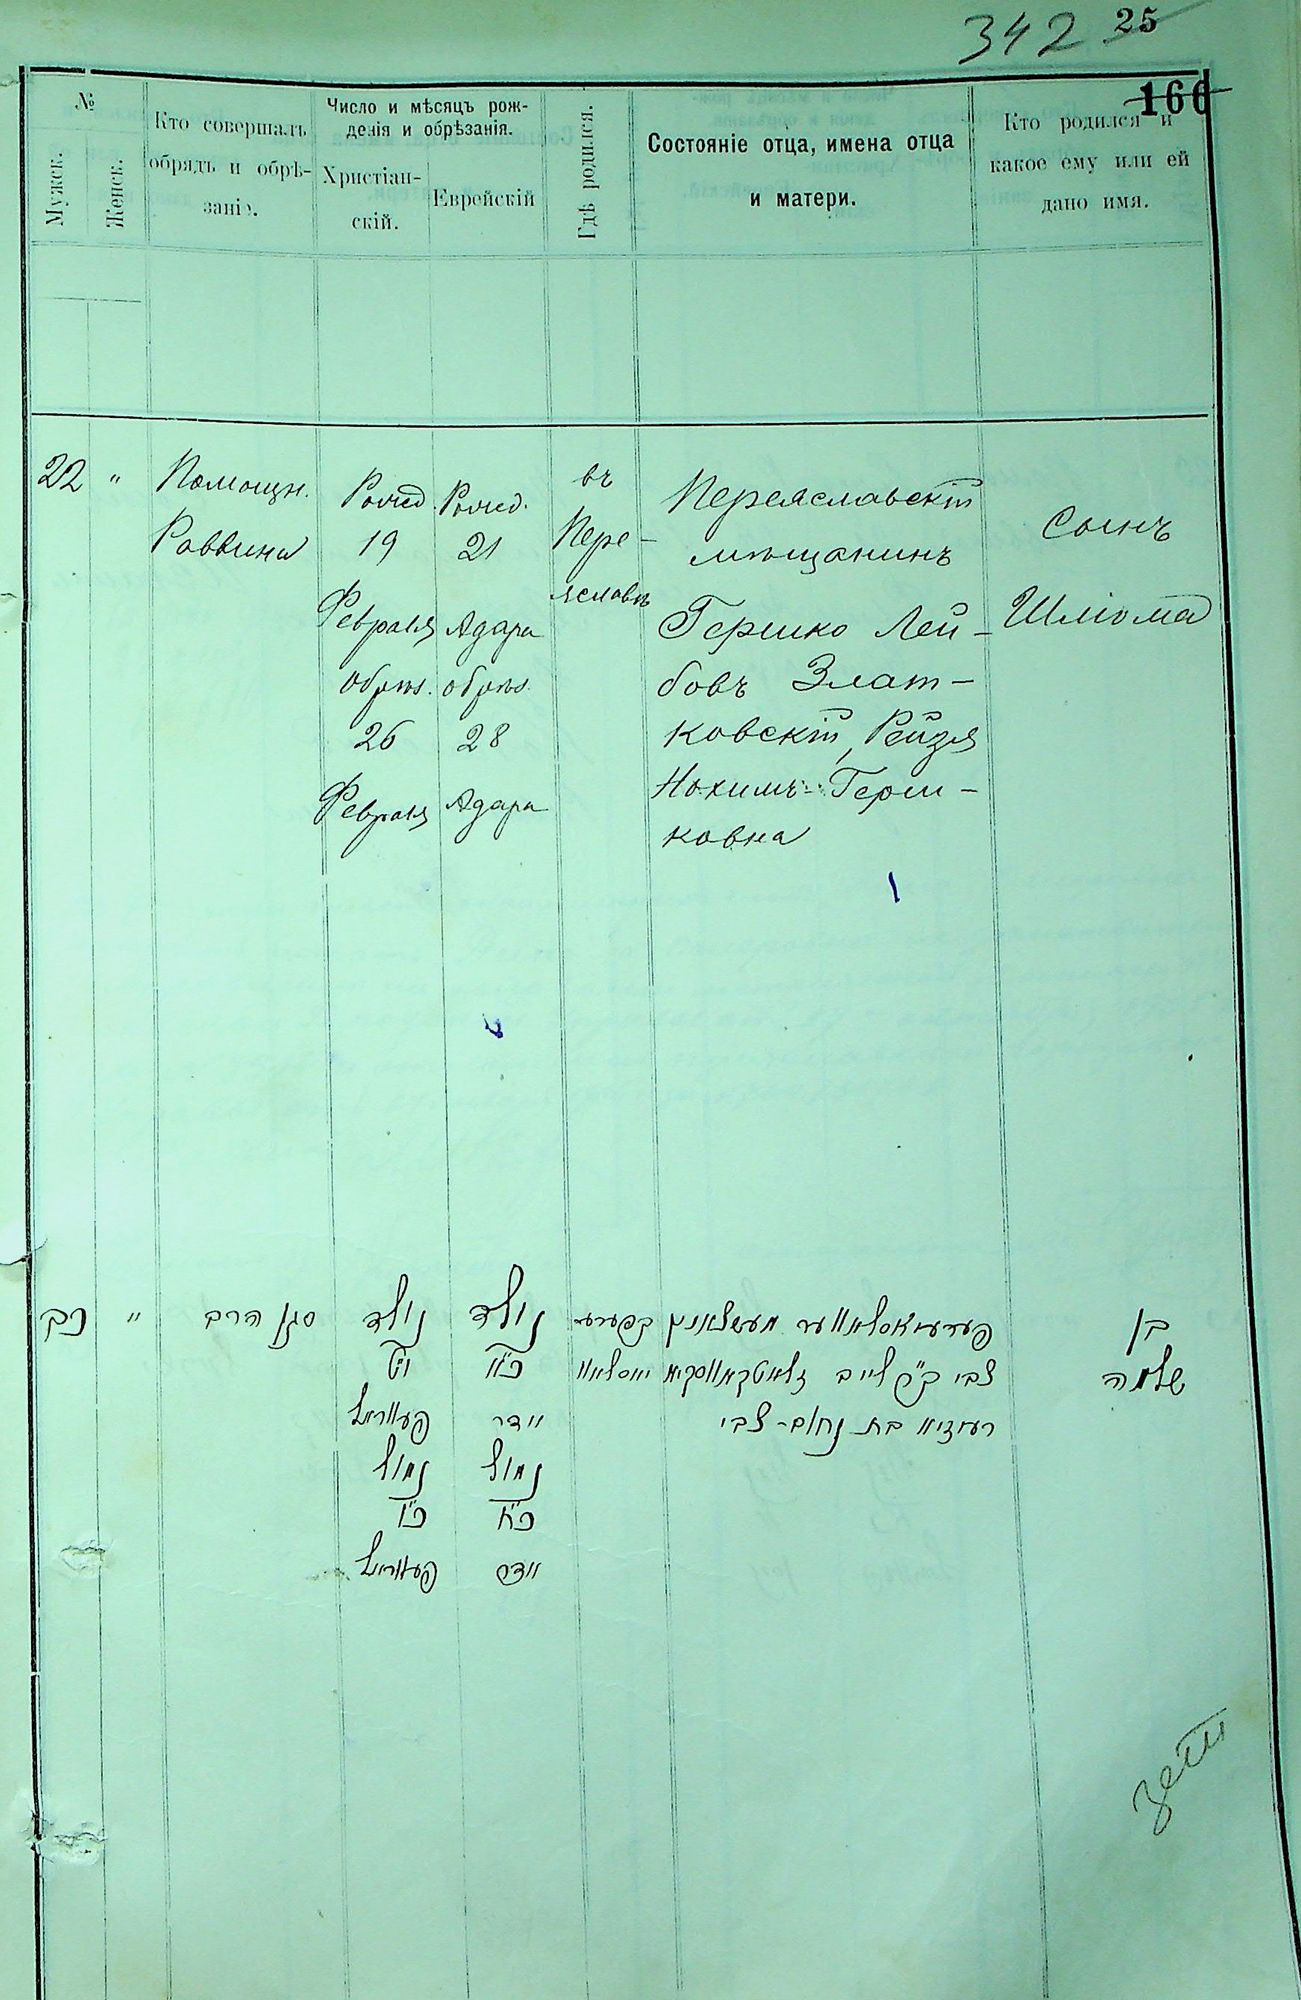 342 25
166
№
Мужск.
Женск.
Кто совершалъ
обрядъ и обрѣ-
заніе.
Число и мѣсяцъ рож-
денія и обрѣзанія.
Христіан-
скій.
Еврейскій
Гдѣ родился.
Состояніе отца, имена отца
и матери.
Кто родился и
какое ему или ей
дано имя.
22 "
Помощн.
Раввина
Рожд.
19
Февраля
обрѣз.
26
Февраля
Рожд.
21
Адара
обрѣз.
28
Адара
въ
Пере-
яславѣ
Переяславскій
мѣщанинъ
Гершко Лей-
бовъ Злат-
ковскій, Рейзя
Нохимъ-Герш-
ковна
Сынъ
Шлiома
כב "
סגן הרב
נולד
י״ט
פעווראל
נמול
כ״ו
פעווראל
נולד
כ״א
אדר
נמול
כ״ח
אדר
פערעיאסלאווער מעשצאנין
צבי ב״ר לייב זלאטקאווסקיא
רעיזיא בת נחום-צבי
בן
שלמה